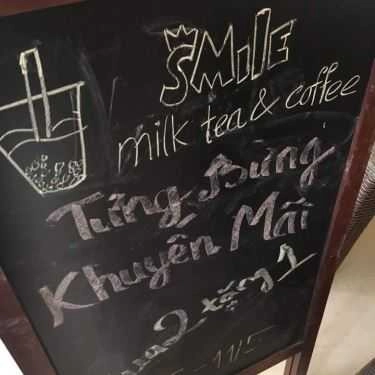 SMILE
milk tea & coffee
Tưng Bừng
Khuyến Mãi
2 tặng 1
- 11/5